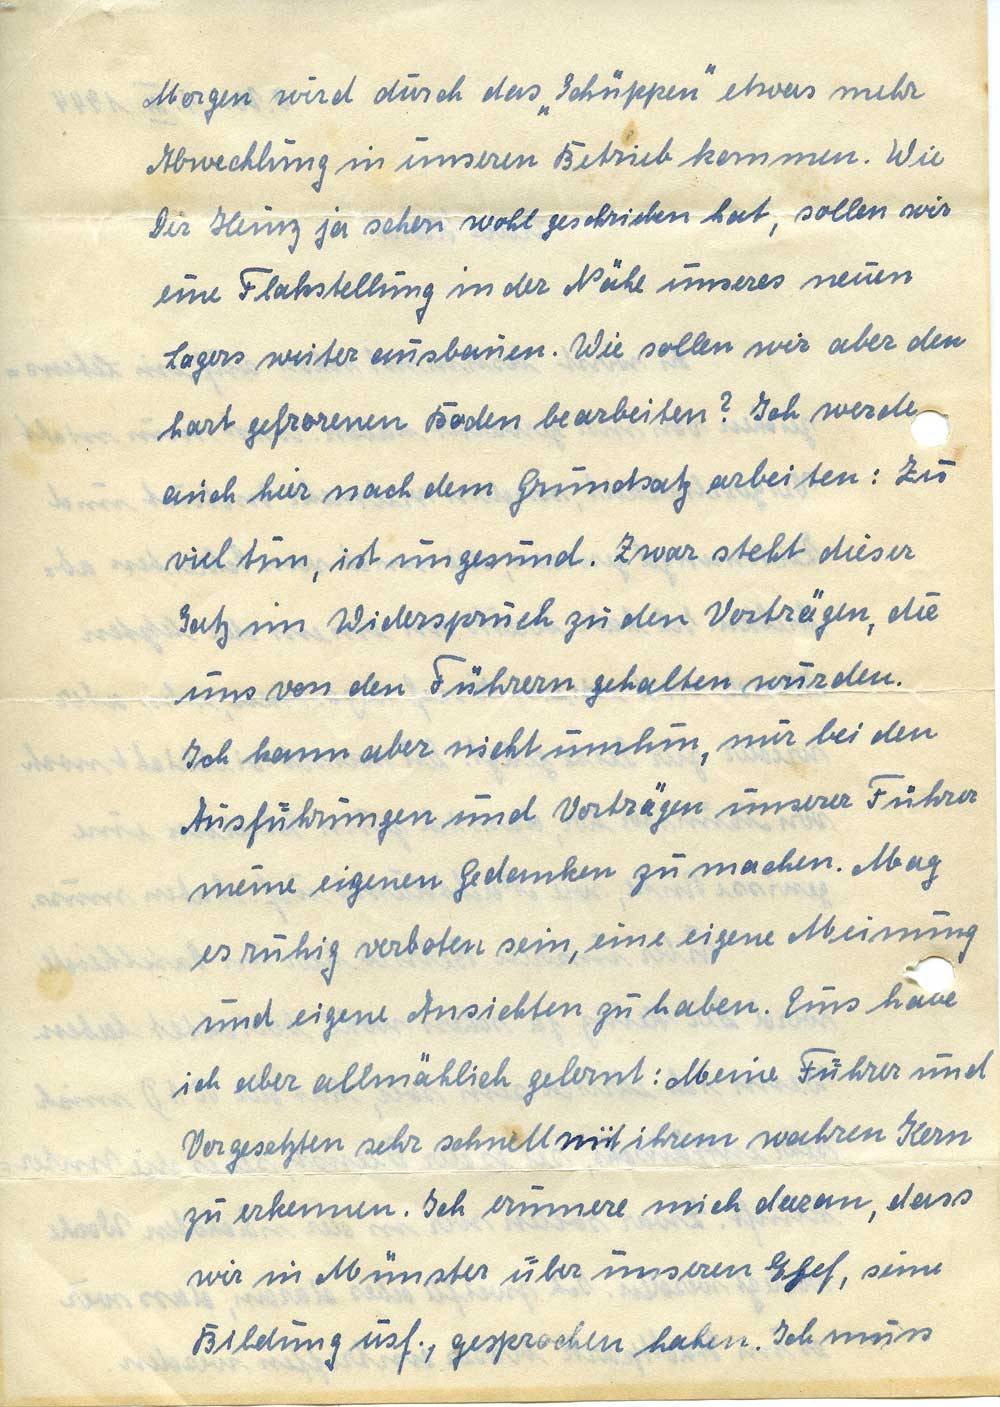 Morgen wird durch das „Schüppen" etwas mehr
Abwechlung in unseren Betrieb kommen. Wie
Dir Heinz ja schon wohl geschrieben hat, sollen wir
eine Flakstellung in der Nähe unseres neuen
Lagers weiter ausbauen. Wie sollen wir aber den
hart gefrorenen Boden bearbeiten? Ich werde
auch hier nach dem Grundsatz arbeiten: Zu
viel tun, ist ungesund. Zwar steht dieser
Satz im Widerspruch zu den Vorträgen, die
uns von den Führern gehalten wurden.
Ich kann aber nicht umhin, mir bei den
Ausführungen und Vorträgen unserer Führer
meine eigenen Gedanken zu machen. Mag
es ruhig verboten sein, eine eigene Meinung
und eigene Ansichten zu haben. Eins habe
ich aber allmählich gelernt: Meine Führer und
Vorgesetzten sehr schnell mit ihrem wahren Kern
zu erkennen. Ich erinnere mich daran, dass
wir in Münster über unseren Chef, seine
Bildung usf., gesprochen haben. Ich muss